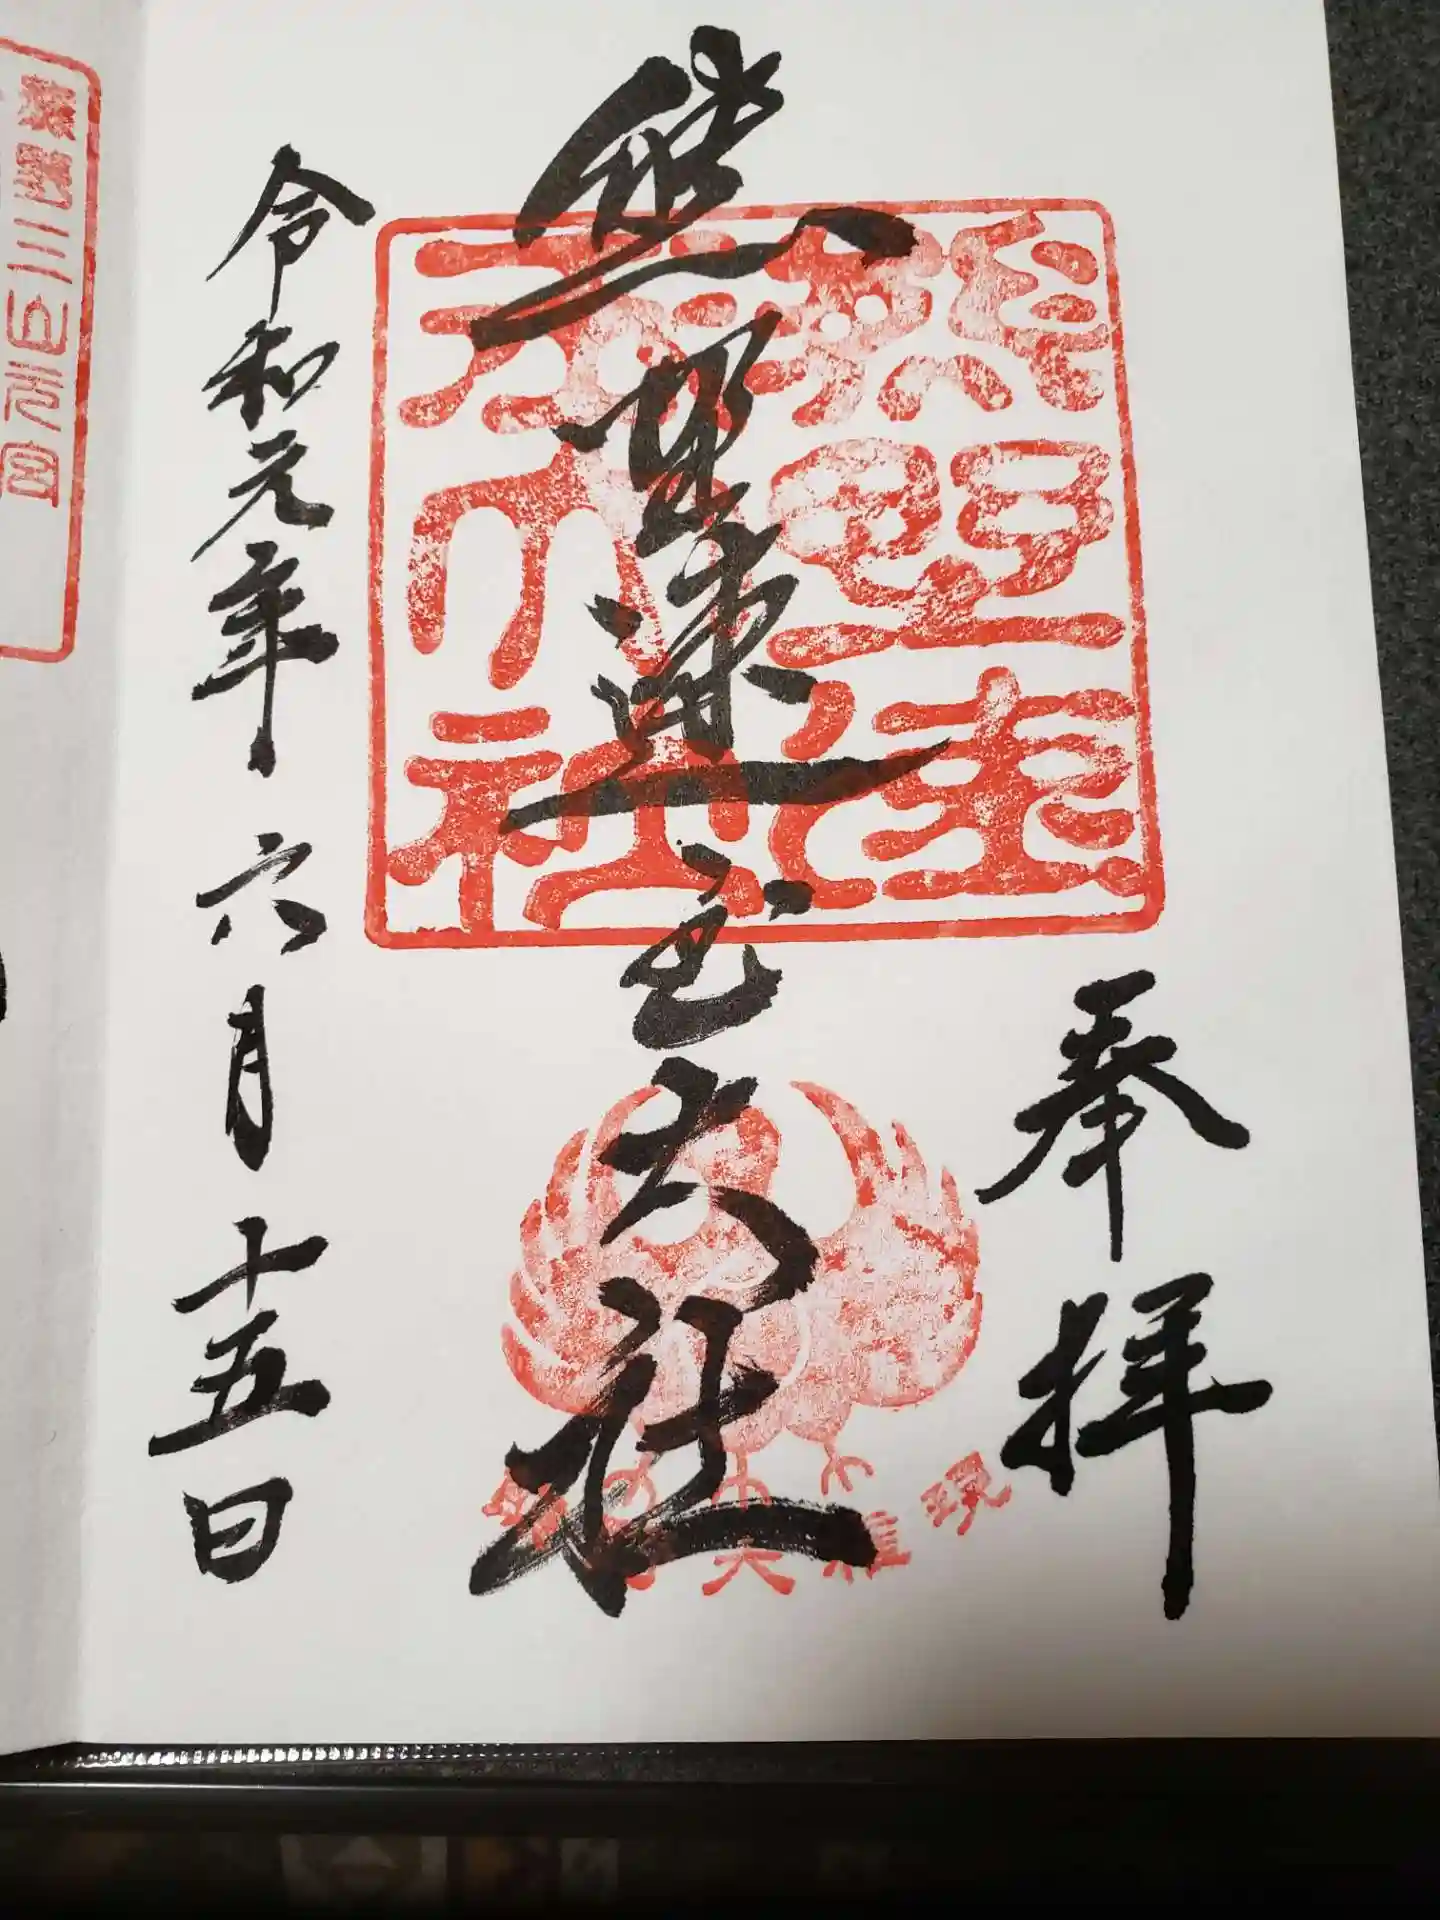 奉拝
熊野速玉大社
熊野速
玉大社
大権現
令和元年六月十五日
熊野三山元宮